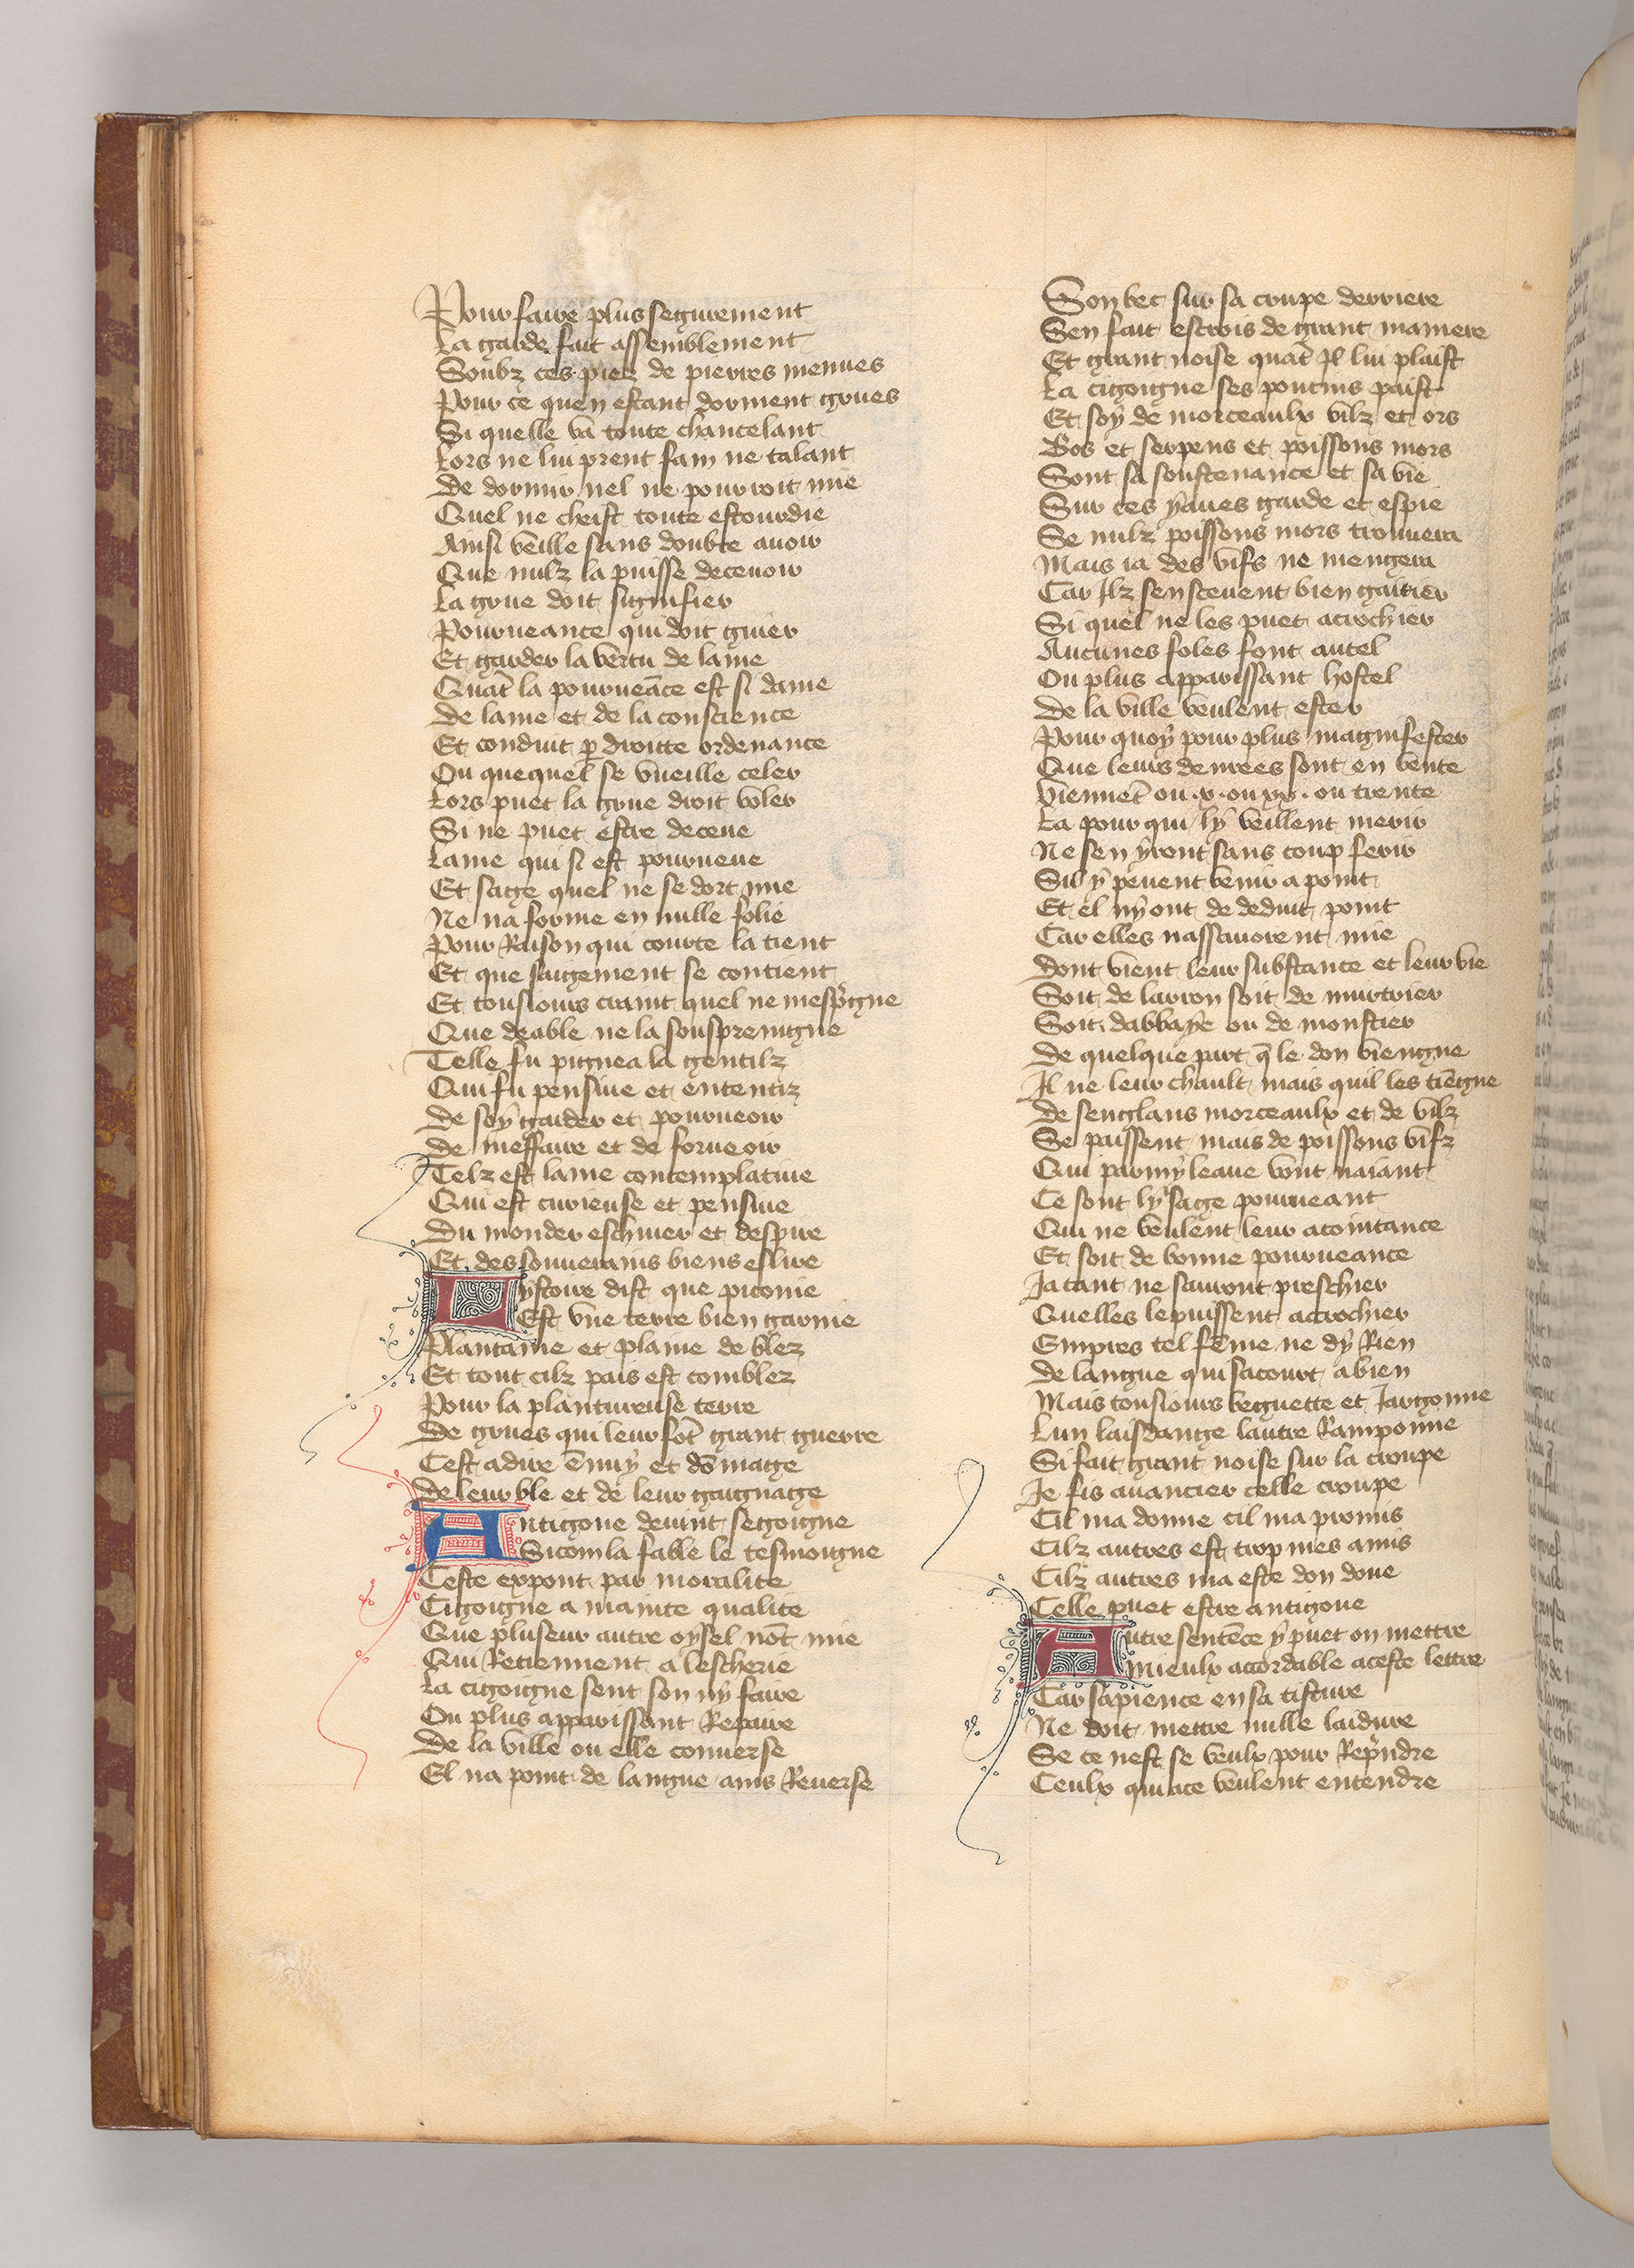 Pour faire plus segurement
La garde fait assemblement
Soubz ces piez de pierres menues
Pour ce quen estant dorment grues
Si quelle va toute chancelant
Lors ne lui prent fain ne talant
De dormir nel ne pourroit mie
Quel ne cheist toute estourdie
Ainsi veille sans doubte auoir
Que nulz la puisse deceuoir
La grue doit signifier
Pourueance qui doit guier
Et garder la vertu de lame
Quāt la pourueāce est si dame
De lame et de la conscience
Et conduit ꝑ droitte ordenance
Ou quequel se vueille celer
Lors puet la grue droit voler
Si ne puet estre deceue
Lame qui si est pourueue
Et sage quel ne se dort mie
Ne na forme en nulle folie
Pour Raison qui courte la tient
Et que saigement se contient
Et tousiours craint quel ne mesp̄igne
Que deable ne la sousprengne
Telle fu pignea la gentilz
Qui fu pensiue et ententiz
De soy garder et pourueoir
De meffaire et de forueoir
Telz est lame contemplatiue
Qui est curieuse et pensiue
Du monder eschiuer et despire
Et des souuerains biens eslire
Lystoire dist que picome
Est vne terre bien garnie
Plantaine et plaine de blez
Et tout cilz pais est comblez
Pour la plantureuse terre
De grues qui leur fōt grant guerre
Cest adire ēnuy et dōmage
De leur ble et de leur gaignage
Antigone deuint segoigne
Sicom la fable le tesmoigne
Ceste expont par moralite
Cigoigne a mainte qualite
Que pluseur autre oysel nōt mie
Qui Retiennent a lescherie
La cigoigne sent son ny faire
Ou plus apparissant Repaire
De la ville ou elle conuerse
El na point de langue ains Reuerse
Son bec sur sa crupe derriere
Sen fait escrois de grant maniere
Et grant noise quāt Il lui plaist
La cigoigne ses poucins paist
Et soy de morceaulx vilz et ors
Bos et serpens et poissons mors
Sont sa soustenance et sa vie
Sur ces yaues garde et espie
Se nulz poissons mors trouuera
Mais ia des vifs ne mengera
Car Ilz sen sceuent bien gaitier
Si quel ne les puet acrochier
Aucunes foles font autel
Ou plus apparissant hostel
De la ville veulent ester
Pour quoy pour plus magnifester
Que leurs denrees sont en vente
Viennēt ou .x. ou xx. ou trente
La pour qui ly veillent merir
Ne sen yront sans coup ferir
Sil y peuent venir a point
Et el ny ont de deduit point
Car elles nassauorent mie
Dont vient leur substance et leur vie
Soit de larron soit de murtrier
Soit dabbaye ou de monstier
De quelque part q̄ le don viengne
Il ne leur chault mais quil les tiēgne
De senglans morceaulx et de vilz
Se paissent mais de poissons vifz
Qui parmy leaue vont naiant
Ce sont ly sage pourueant
Qui ne veulent leur acointance
Et soit de bonne pourueance
Ja tant ne sauront preschier
Quelles le puissent acrochier
Empres tel fēme ne dy Rien
De langue qui sacourt a bien
Mais tousiours beguette et Jargonne
Lun laisdange lautre Ramponne
Si fait grant noise sur la croupe
Je fis auancier celle croupe
Cil ma donne cil ma promis
Cilz autres est trop mes amis
Cilz autres ma este don doue
Celle puet estre antigone
Autre sentēce y puet on mettre
Mieulx accordable a ceste lettre
Car sapience en sa tisture
Ne doit mettre nulle laidure
Se ce nest se veulx pour Rep̄ndre
Ceulx qui a ce veulent entendre